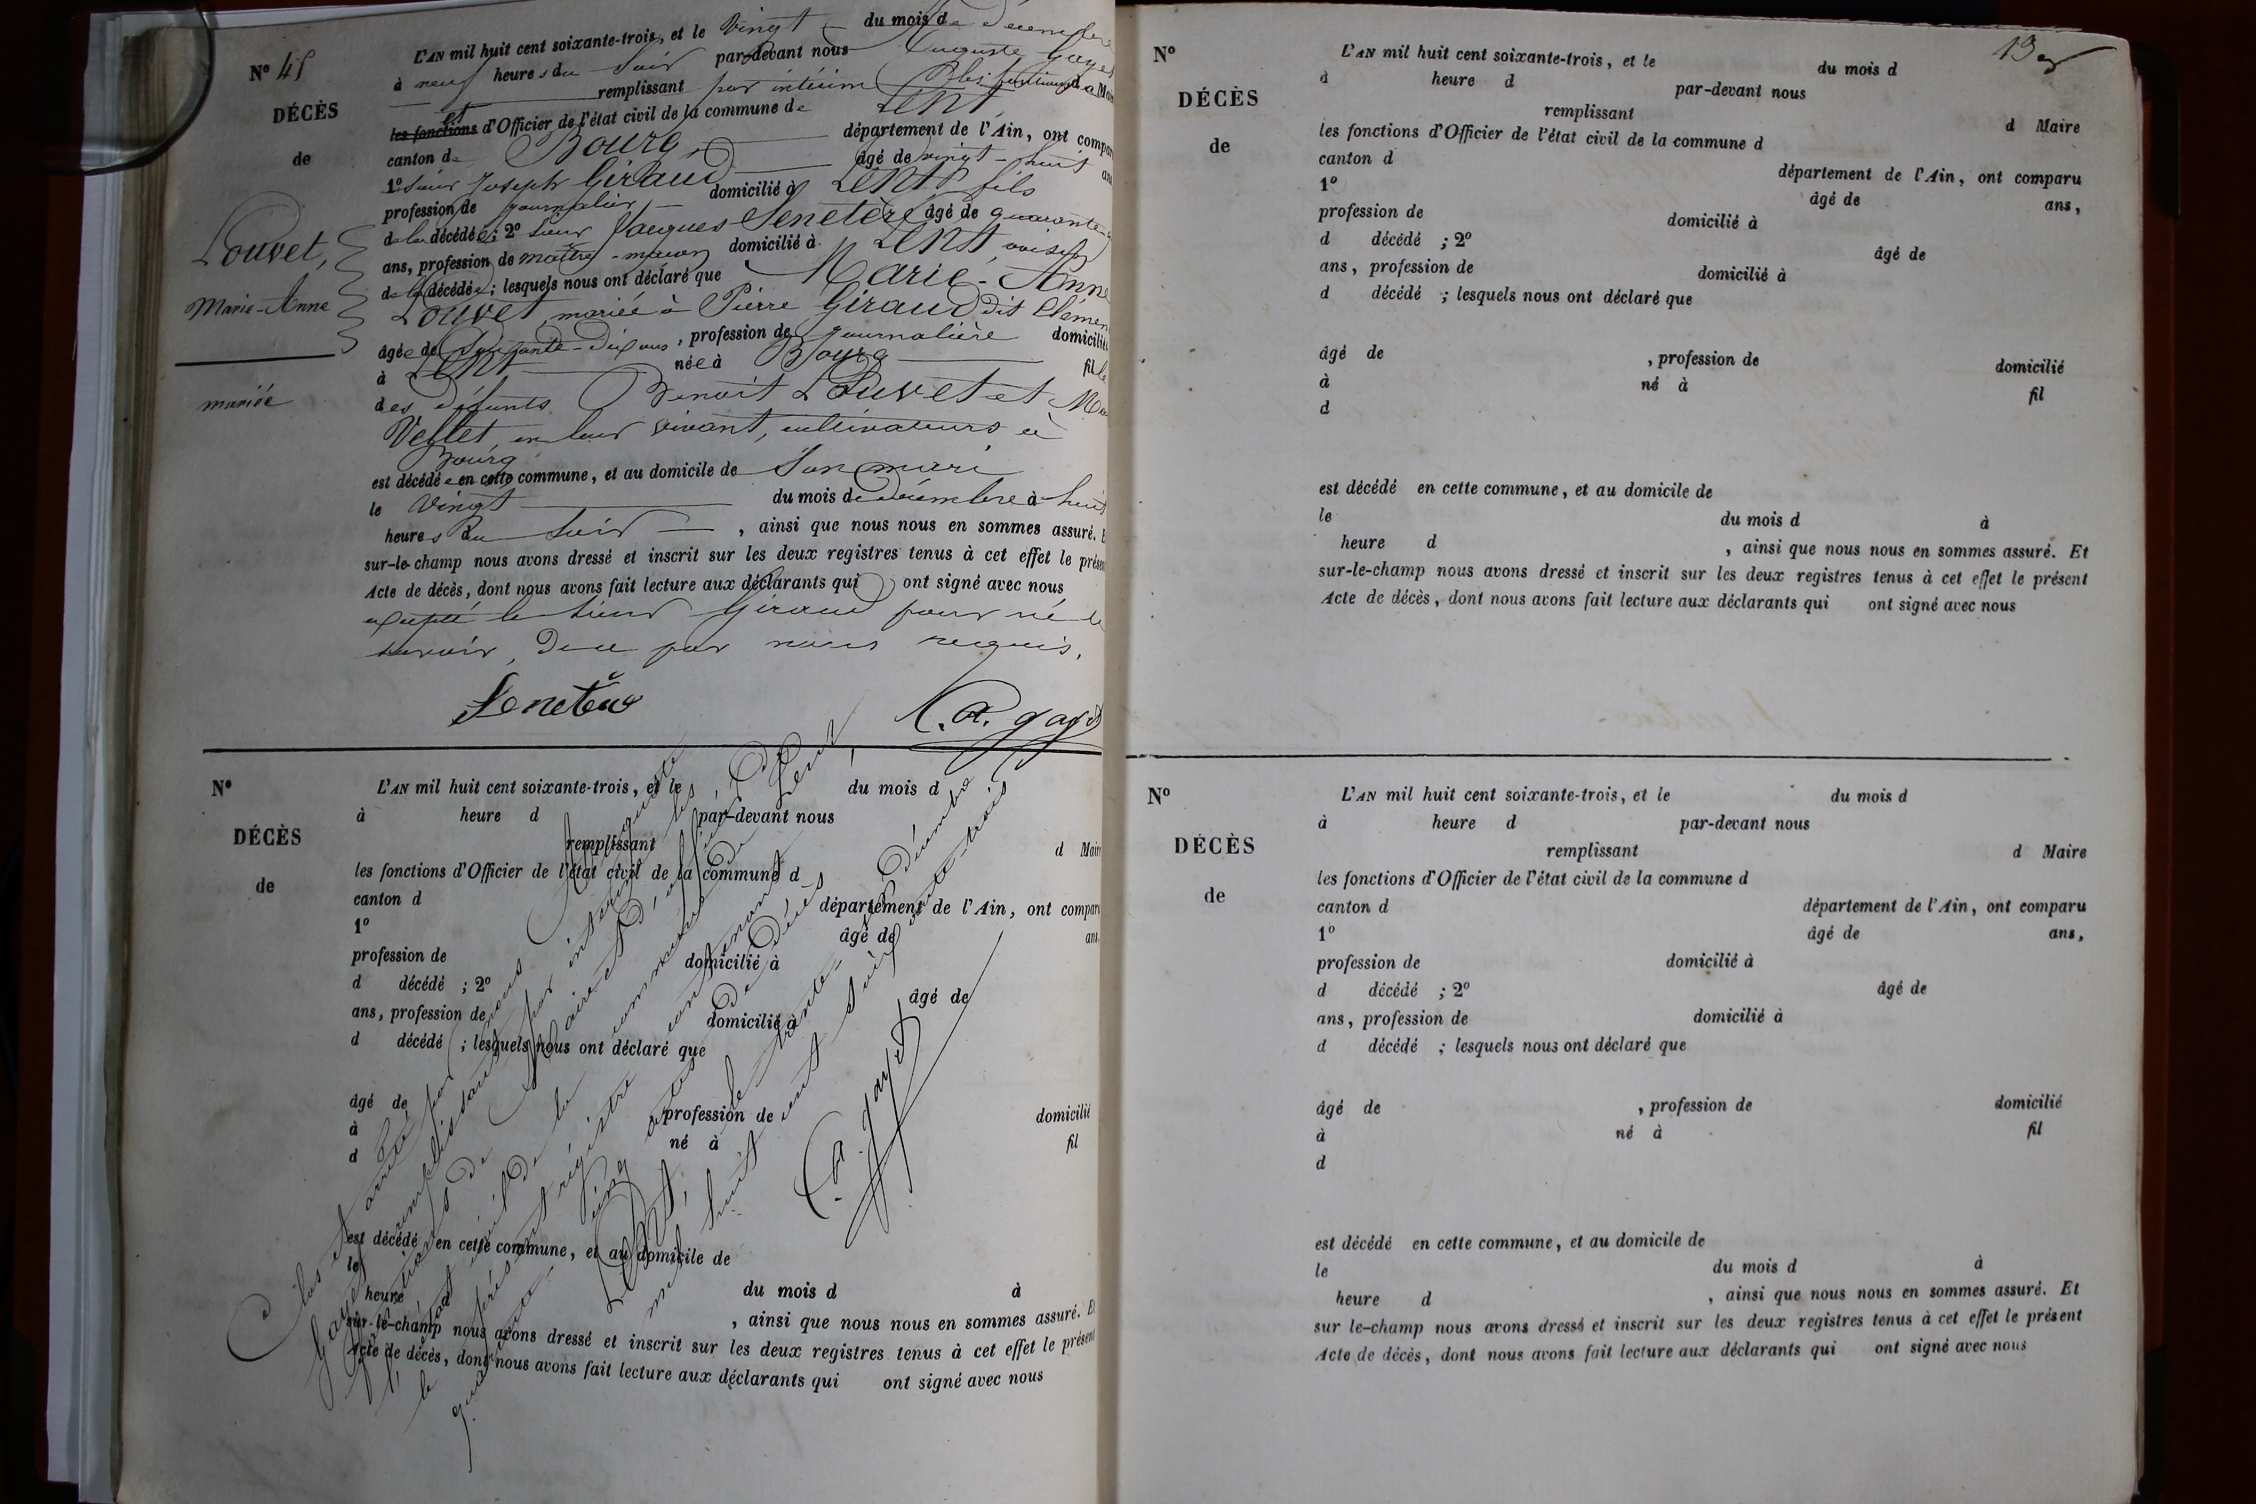 N° 45
DÉCÈS
de
Louvet,
Marie-Anne
mariée
L'AN mil huit cent soixante-trois, et le vingt du mois de décembre
à neuf heures du soir par-devant nous Auguste Gayet
remplissant par intérim les fonctions de Maire
et
les fonctions d'Officier de l'état civil de la commune de Lent
canton de Bourg département de l'Ain, ont compar
1° sieur Joseph Giraud âgé de vingt-huit ans
profession de journalier domicilié à Lent fils
de la décédée ; 2° sieur Jacques Senetère âgé de quarante-
ans, profession de maître-maçon domicilié à Lent, voisin
de la décédée ; lesquels nous ont déclaré que Marie-Anne
Louvet, mariée à Pierre Giraud dit Clément
âgée de soixante-dix ans, profession de journalière domiciliée
à Lent née à Bourg fille
des défunts Benoît Louvet et
Vellet, en leur vivant, cultivateurs à
Bourg
est décédée en cette commune, et au domicile de son mari
le vingt du mois de décembre à huit
heures du soir , ainsi que nous nous en sommes assuré. E
sur-le-champ nous avons dressé et inscrit sur les deux registres tenus à cet effet le présen
Acte de décès, dont nous avons fait lecture aux déclarants qui ont signé avec nous
excepté le sieur Giraud pour ne le
savoir, de ce par nous requis.
Senetère
A. Gayet
N°
DÉCÈS
de
L'AN mil huit cent soixante-trois, et le du mois d
à heure d par-devant nous
remplissant d Mair
les fonctions d'Officier de l'état civil de la commune d
canton d département de l'Ain, ont compar
1° âgé de ans
profession de domicilié à
d décédé ; 2° âgé de
ans, profession de domicilié à
d décédé ; lesquels nous ont déclaré que
âgé de profession de domicilié
à né à fil
d
est décédé en cette commune, et au domicile de
le du mois d à
heure d , ainsi que nous nous en sommes assuré. Et
sur-le-champ nous avons dressé et inscrit sur les deux registres tenus à cet effet le présent
Acte de décès, dont nous avons fait lecture aux déclarants qui ont signé avec nous
Clos et arrêté par nous Auguste
Gayet remplissant par intérim les
fonctions de Maire et d'officier de
l'état civil de la commune de Lent,
le présent régistre contenant
quarante-cinq actes de décès
Lent, le trente-un décembre
mil huit cent soixante-trois
A. Gayet
13
N°
DÉCÈS
de
L'AN mil huit cent soixante-trois, et le du mois d
à heure d par-devant nous
remplissant d Maire
les fonctions d'Officier de l'état civil de la commune d
canton d département de l'Ain, ont comparu
1° âgé de ans,
profession de domicilié à
d décédé ; 2° âgé de
ans, profession de domicilié à
d décédé ; lesquels nous ont déclaré que
âgé de , profession de domicilié
à né à fil
d
est décédé en cette commune, et au domicile de
le du mois d à
heure d , ainsi que nous nous en sommes assuré. Et
sur-le-champ nous avons dressé et inscrit sur les deux registres tenus à cet effet le présent
Acte de décès, dont nous avons fait lecture aux déclarants qui ont signé avec nous
N°
DÉCÈS
de
L'AN mil huit cent soixante-trois, et le du mois d
à heure d par-devant nous
remplissant d Maire
les fonctions d'Officier de l'état civil de la commune d
canton d département de l'Ain, ont comparu
1° âgé de ans,
profession de domicilié à
d décédé ; 2° âgé de
ans, profession de domicilié à
d décédé ; lesquels nous ont déclaré que
âgé de , profession de domicilié
à né à fil
d
est décédé en cette commune, et au domicile de
le du mois d à
heure d , ainsi que nous nous en sommes assuré. Et
sur le-champ nous avons dressé et inscrit sur les deux registres tenus à cet effet le présent
Acte de décès, dont nous avons fait lecture aux déclarants qui ont signé avec nous